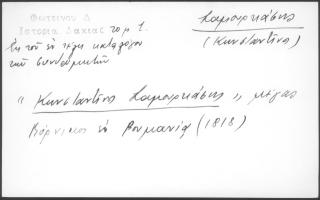 Φωτεινου Δ
Ιστορια Δακιας τομ 1.
Εκ τοῦ ἐν τέλει καταλόγου
τῶν συνδρομητῶν
Σαμουρκάσης
(Κωνσταντῖνος)
"Κωνσταντῖνος Σαμουρκάσης" μέγας
Βόρνικος ἐν Ρουμανίᾳ (1818)